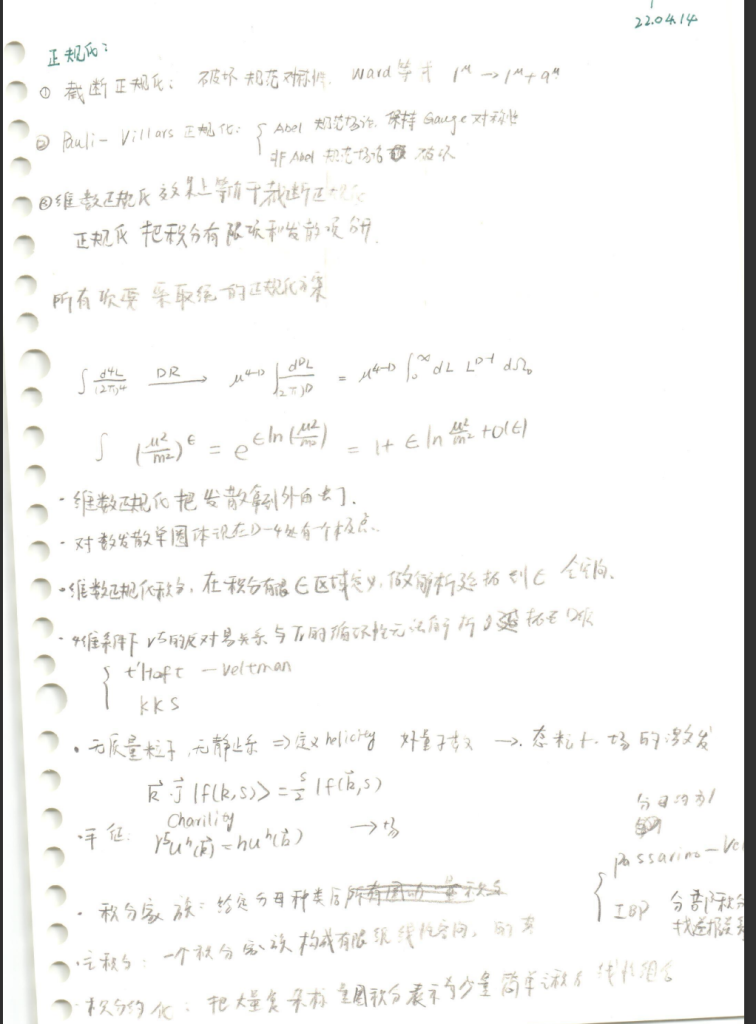 22.04.14
正规化:
① 截断正规化: 破坏规范对称性. Ward等式 l^μ → l^μ + q^μ
② Pauli-Villars 正规化: { Abel 规范场论 保持 Gauge 对称性
非Abel 规范场论 破坏
③维数正规化 效果上等价于截断正规化
正规化 把积分有限项和发散项分开.
所有 要采取统 的正规化方案
∫ d4L/(2π)4 DR → μ^4-D ∫ dDL/(2π)D = μ^4-D ∫_0^∞ dL L^D-1 dΩ_D
∫ (μ²/m²)^ϵ = e^{ϵ ln(μ²/m²)} = 1 + ϵ ln μ²/m² + O(ϵ)
· 维数正规化把发散拿到外面去了.
· 对数发散单圈 D-4处有一个极点.
· 维数正规化积分, 在积分有限 ϵ 区域定义, 做解析延拓到 ϵ 全空间.
· 4维条件下 γ5的反对易关系与Tr的循环性无法 延拓 D维
{ t'Hoft - Veltman
KKS
· 无质量粒子, 无静止系 ⇒ 定义helicity 好量子数 → 态粒子. 场的激发
k⃗·J⃗ |f(k,s)> = s/2 |f(k⃗,s)
Charility
·手征: γ^5 u^h(k⃗) = h u^h(k⃗) → 场
分母约
{ Passarino-Ve
IBP 分部积分
找递推关系
· 积分家族: 给定分母种类后
·主积分: 一个积分家族构成有限 线性空间,
· 积分约化: 把大量复杂 圈积分表示为少量简单 线性组合